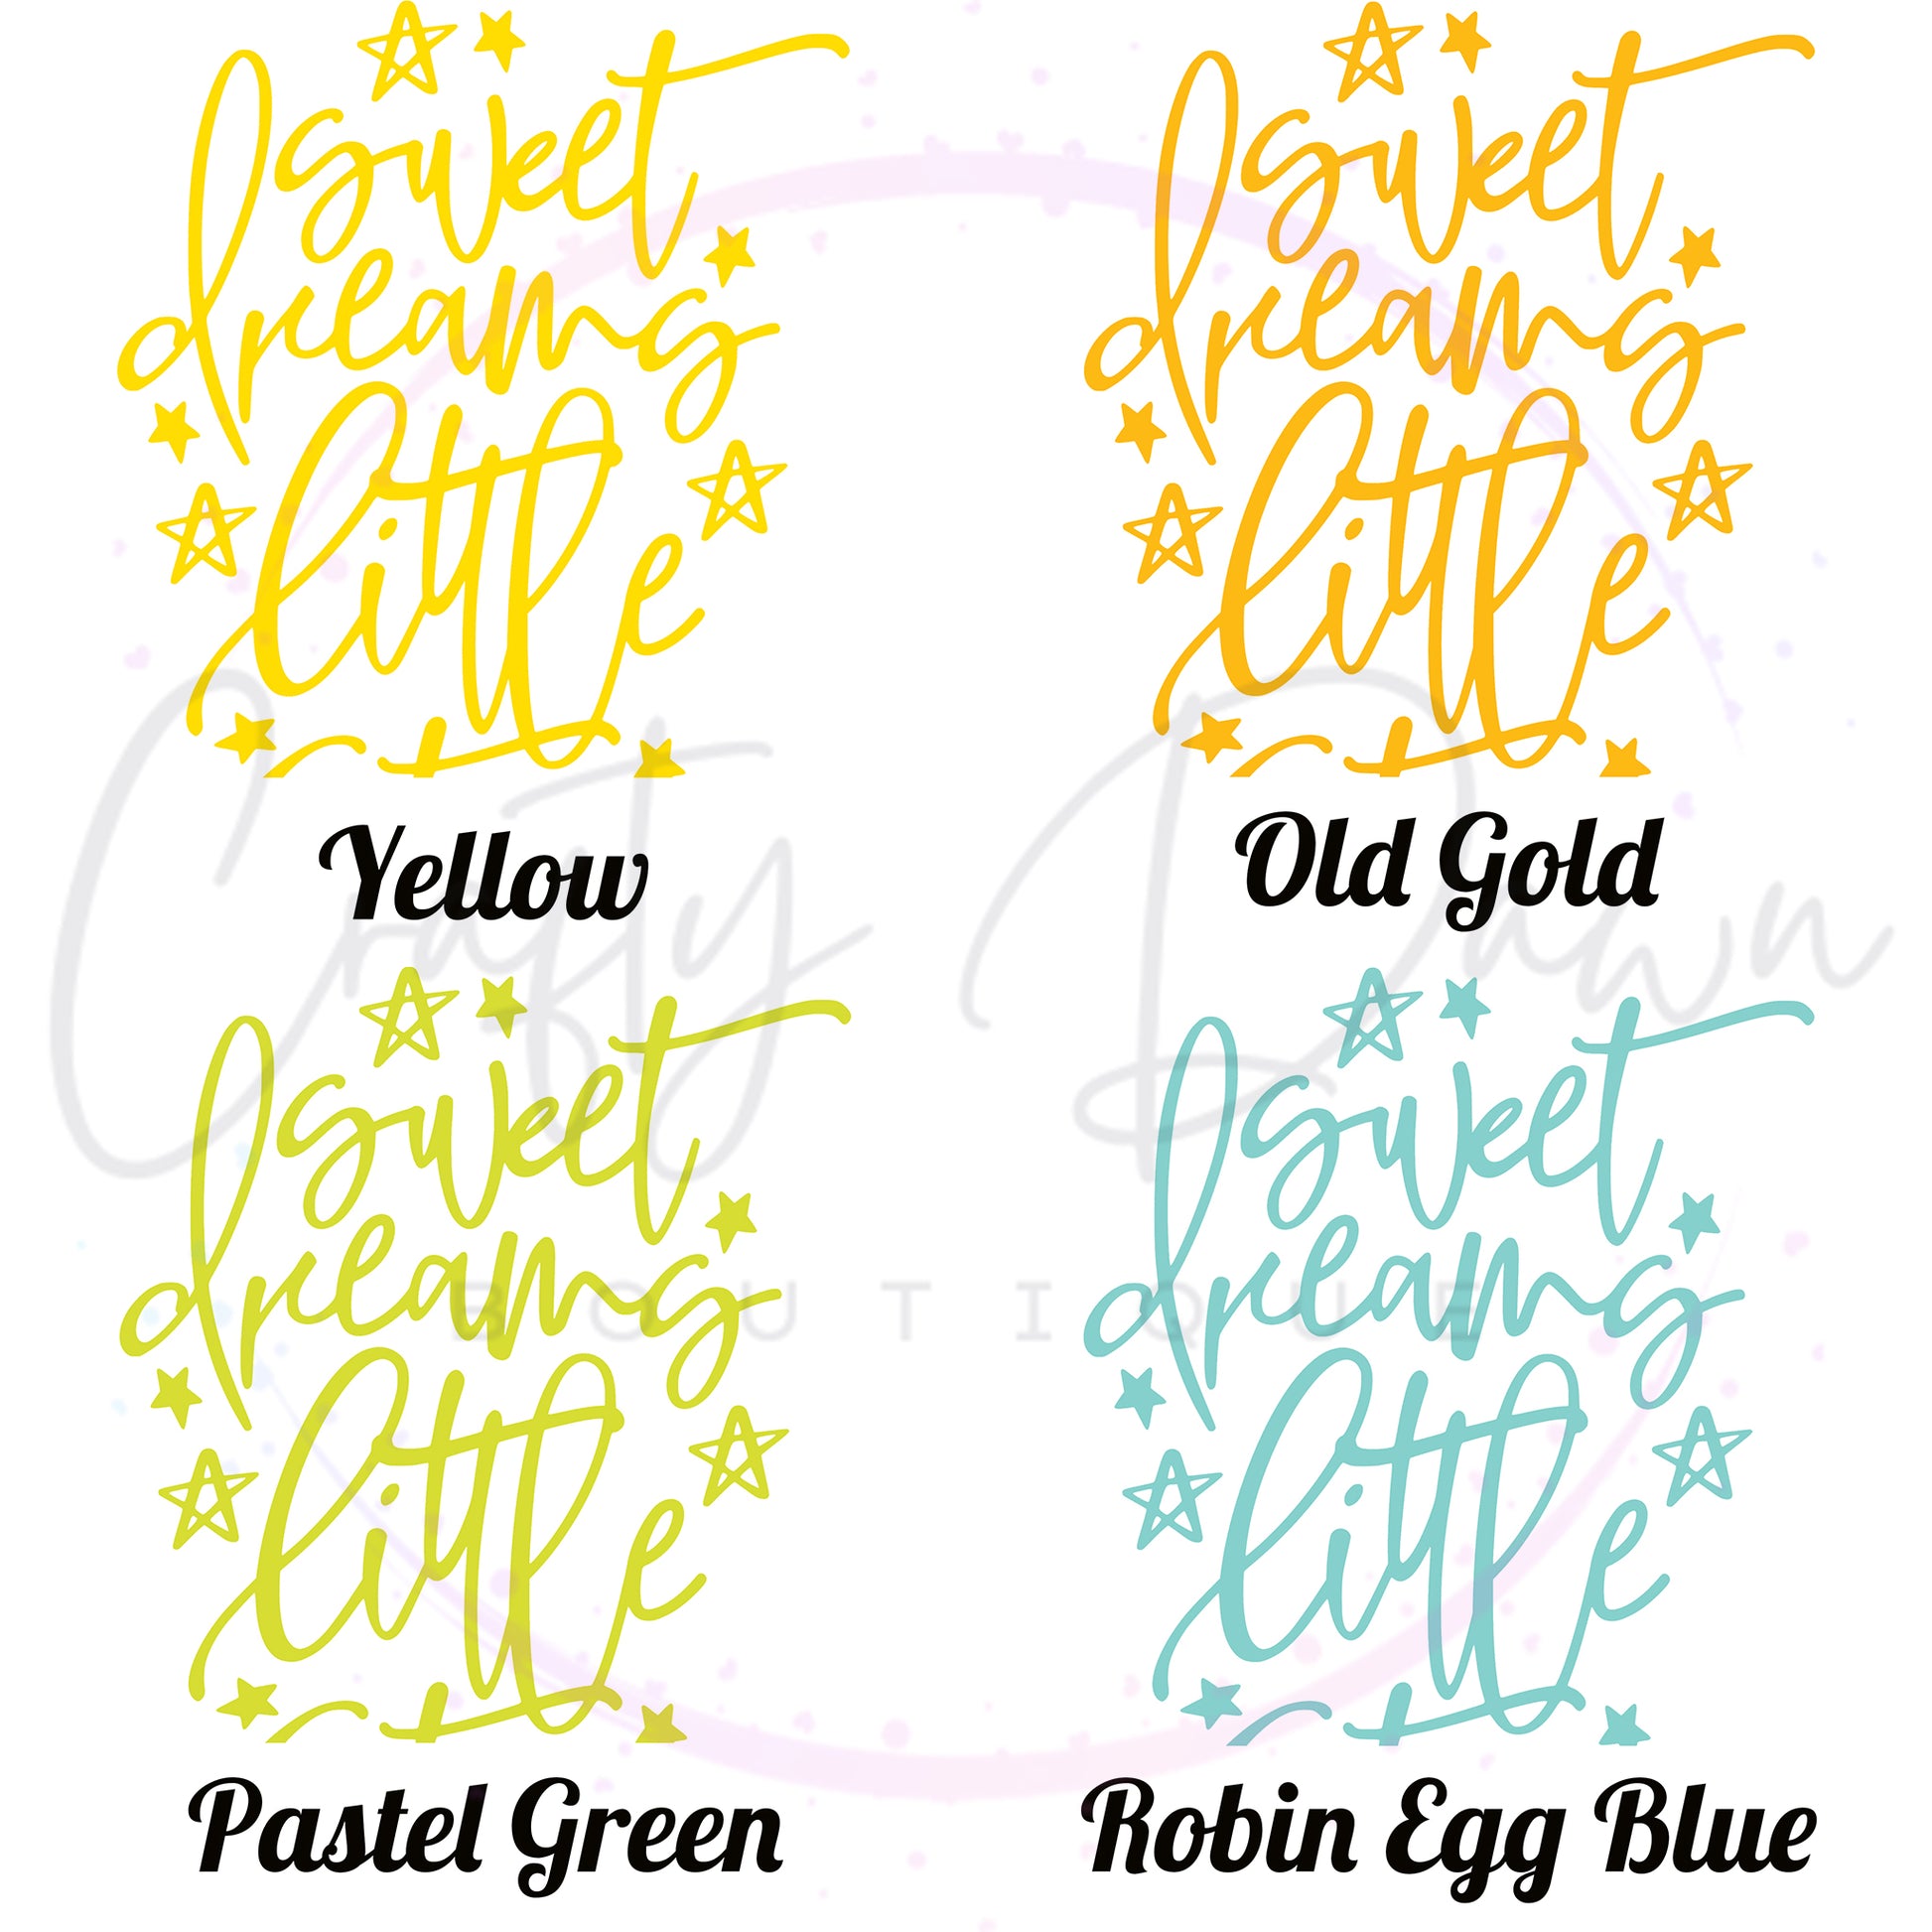 sweet
dreams
little
sweet
dreams
little
Yellow
Old Gold
Crafty Dawn
sweet
dreams
little
sweet
dreams
little
BOUTIQUE
Pastel Green
Robin Egg Blue